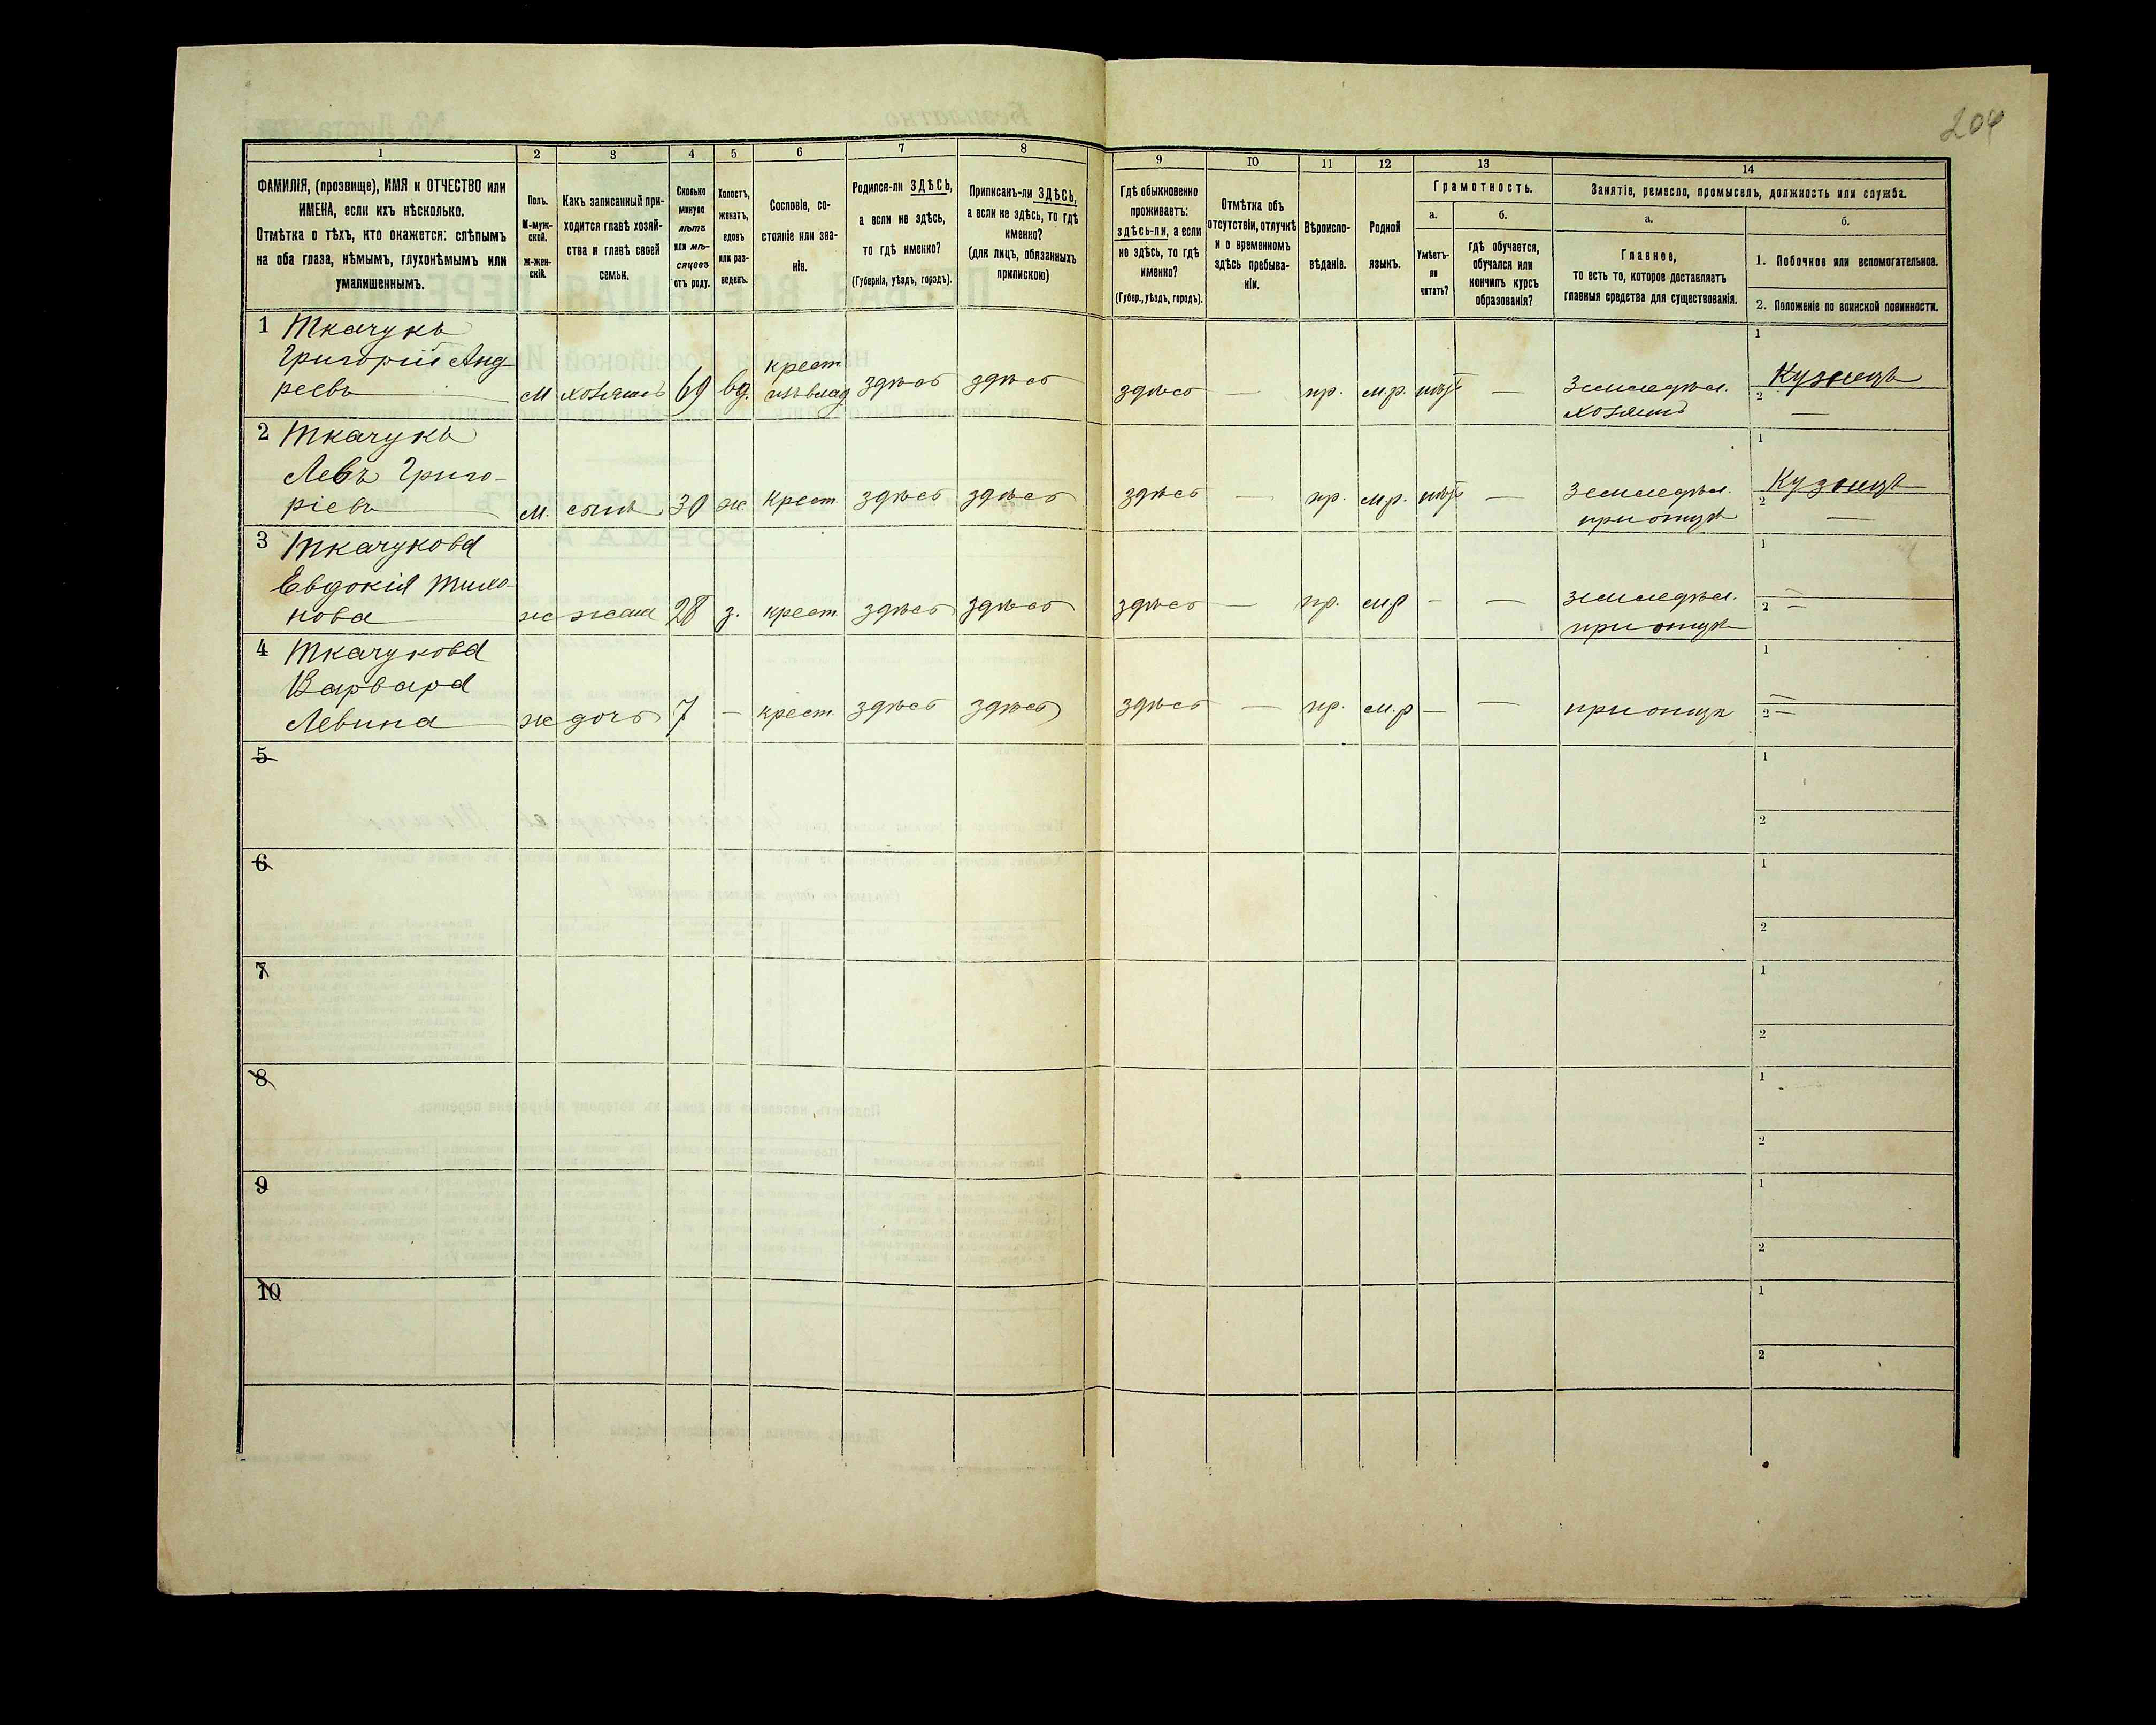 204
1
2
3
4
5
6
7
8
9
10
11
12
13
14
ФАМИЛІЯ, (прозвище), ИМЯ и ОТЧЕСТВО или
ИМЕНА, если ихъ нѣсколько.
Отмѣтка о тѣхъ, кто окажется: слѣпымъ
на оба глаза, нѣмымъ, глухонѣмымъ или
умалишеннымъ.
Полъ.
М-муж-
ской.
Ж-жен-
скій.
Какъ записанный при-
ходится главѣ хозяй-
ства и главѣ своей
семьи.
Сколько
минуло
лѣтъ
или мѣ-
сяцевъ
отъ роду.
Холостъ,
женатъ,
вдовъ
или раз-
веденъ.
Сословіе, со-
стояніе или зва-
ніе.
Родился-ли ЗДѢСЬ,
а если не здѣсь,
то гдѣ именно?
(Губернія, уѣздъ, городъ).
Приписанъ-ли ЗДѢСЬ,
а если не здѣсь, то гдѣ
именно?
(для лицъ, обязанныхъ
припискою)
Гдѣ обыкновенно
проживаетъ:
здѣсь-ли, а если
не здѣсь, то гдѣ
именно?
(Губер., уѣздъ, городъ).
Отмѣтка объ
отсутствіи, отлучкѣ
и о временномъ
здѣсь пребыва-
ніи.
Вѣроиспо-
вѣданіе.
Родной
языкъ.
Грамотность.
а.
Умѣетъ-
ли
читать?
б.
гдѣ обучается,
обучался или
кончилъ курсъ
образованія?
Занятіе, ремесло, промыселъ, должность или служба.
а.
Главное,
то есть то, которое доставляетъ
главныя средства для существованія.
б.
1. Побочное или вспомогательное.
2. Положеніе по воинской повинности.
1 Ткачукъ
Григорій Анд-
реевъ
М хозяинъ 69 вд. крест.
изъ влад здѣсь здѣсь здѣсь — пр. м.р. — Земледѣл.
хозяинъ
1 Кузнецъ
2 —
2 Ткачукъ
Левъ Григо-
ріевъ
м. сынъ 30 ж крест. здѣсь здѣсь здѣсь — пр. м.р. — Земледѣл.
при отцѣ
1 Кузнецъ
2 —
3 Ткачукова
Евдокія Тихо-
нова
ж жена 28 з. крест. здѣсь здѣсь здѣсь — пр. м.р — — земледѣл.
при отцѣ
1 —
2 —
4 Ткачукова
Варвара
Левина
ж дочь 7 — крест. здѣсь здѣсь здѣсь — пр. м.р — — при отцѣ
1 —
2 —
5
1
2
6
1
2
7
1
2
8
1
2
9
1
2
10
1
2